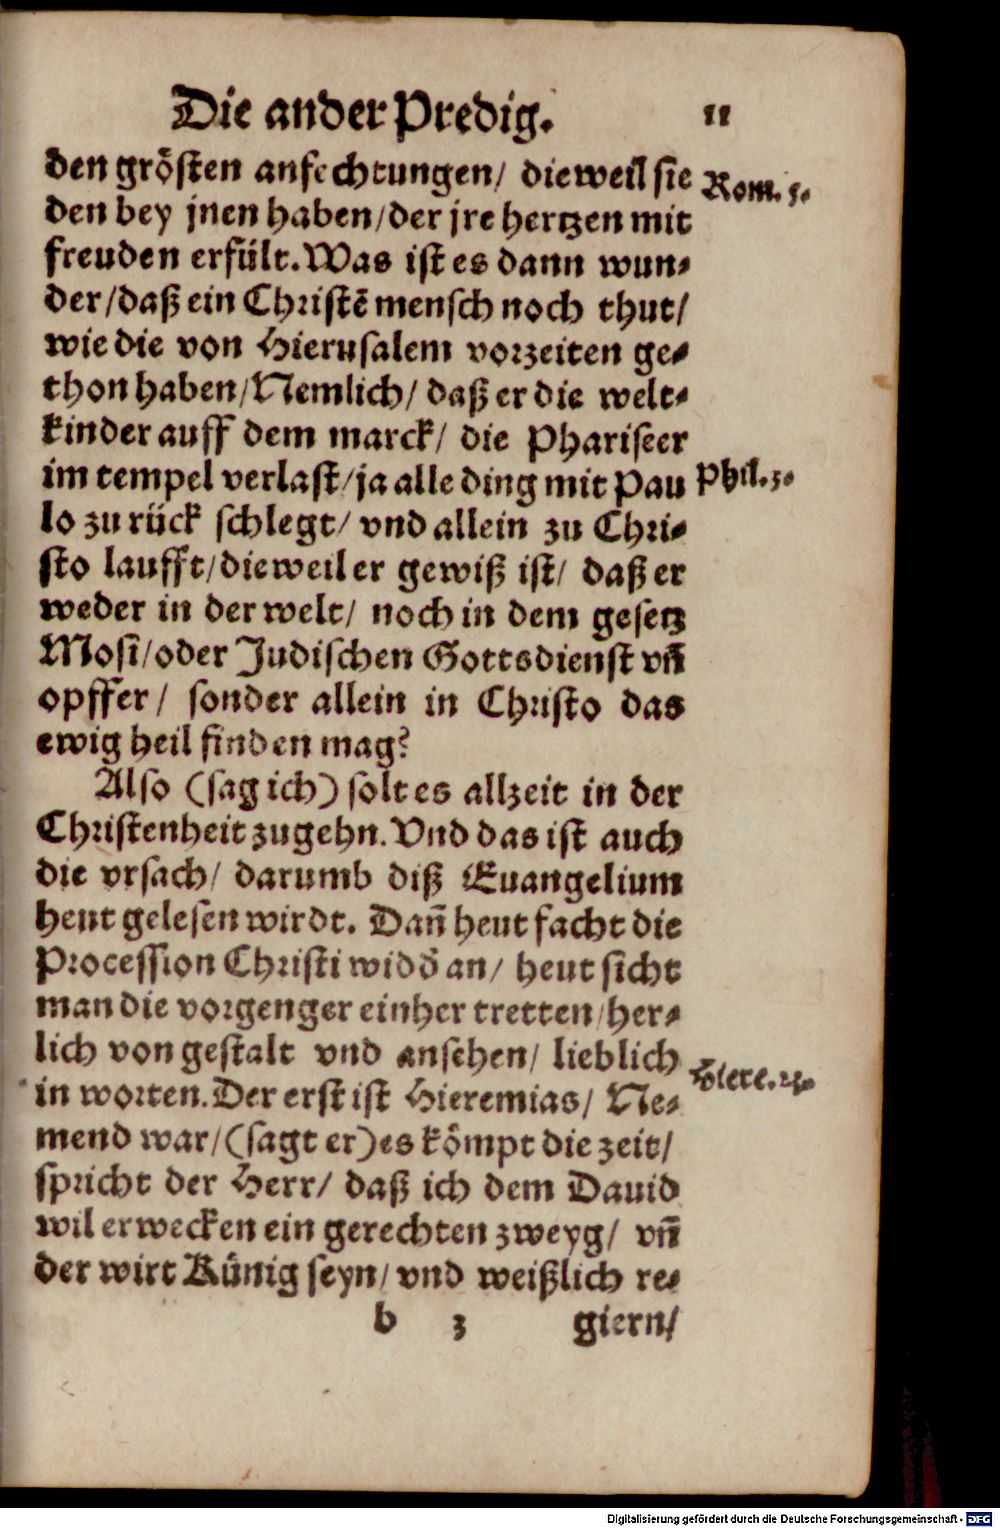 Die ander Predig. 11
den grösten anfechtungen/ dieweil sie Rom. 5.
den bey jnen haben/der jre hertzen mit
freuden erfült. Was ist es dann wun-
der/daß ein Christē mensch noch thut/
wie die von Hierusalem vorzeiten ge-
thon haben/Nemlich/ daß er die welt-
kinder auff dem marck/ die Phariseer
im tempel verlast/ja alle ding mit Pau Phil. 3.
lo zu rück schlegt/ vnd allein zu Chri-
sto laufft/dieweil er gewiß ist/ daß er
weder in der welt/ noch in dem gesetz
Mosi/oder Judischen Gottsdienst vñ
opffer/ sonder allein in Christo das
ewig heil finden mag?
Also (sag ich) solt es allzeit in der
Christenheit zugehn. Vnd das ist auch
die vrsach/ darumb diß Euangelium
heut gelesen wirdt. Dañ heut facht die
Procession Christi widd̕ an/ heut sicht
man die vorgenger einher tretten/her-
lich von gestalt vnd ansehen/ lieblich
in worten. Der erst ist Hieremias/ Ne- Hiere. 23.
mend war/(sagt er)es kömpt die zeit/
spricht der Herr/ daß ich dem Dauid
wil erwecken ein gerechten zweyg/ vñ
der wirt Künig seyn/ vnd weißlich re-
b 3 giern/
Digitalisierung gefördert durch die Deutsche Forschungsgemeinschaft - DFG